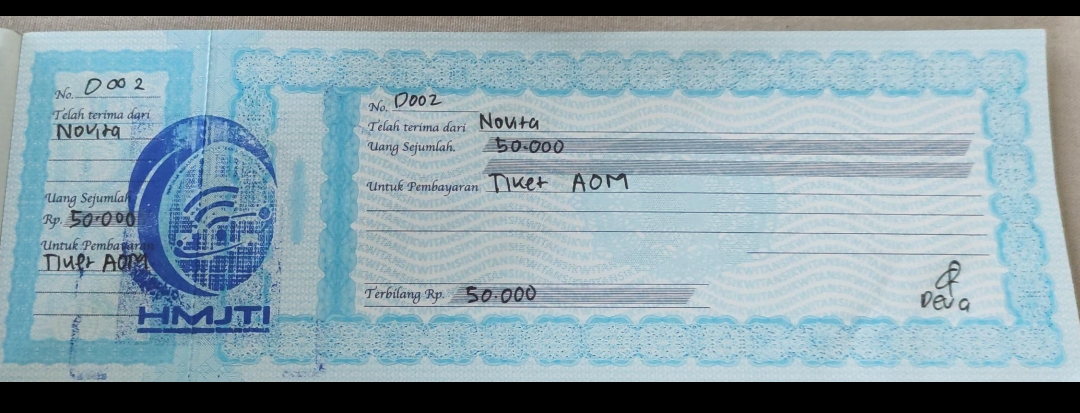 No. D002
Telah terima dari
Novita
Uang Sejumlah
Rp. 50.000
Untuk Pembayaran
Tiket AOM
HMJTI
No. D002
Telah terima dari Novita
Uang Sejumlah. 50.000
Untuk Pembayaran Tiket AOM
Terbilang Rp. 50.000
Deva